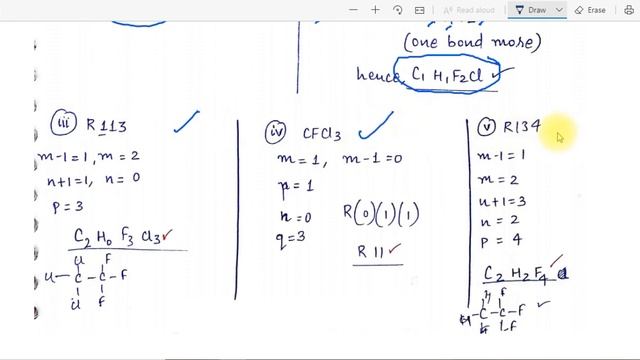 Read aloud
Draw
Erase
(one bond more)
hence, C1 H1 F2 Cl
iii R113
m-1=1, m=2
n+1=1, n=0
P=3
C2 H0 F3 Cl3
Cl F
Cl—C—C—F
Cl F
iv CFCl3
m=1, m-1=0
p=1
n=0
q=3
R(0)(1)(1)
R11
v R134
m-1=1
m=2
n+1=3
n=2
p=4
C2 H2 F4
H F
H—C—C—F
F